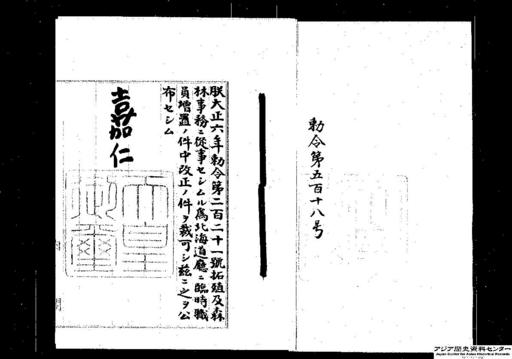 勅令第五百十八号
朕大正六年勅令第二百二十一號拓殖及森
林事務ニ從事セシムル爲北海道廳ニ臨時職
員增置ノ件中改正ノ件ヲ裁可シ玆ニ之ヲ公
布セシム
嘉仁
天皇
御璽
アジア歴史資料センター
Japan Center for Asian Historical Records